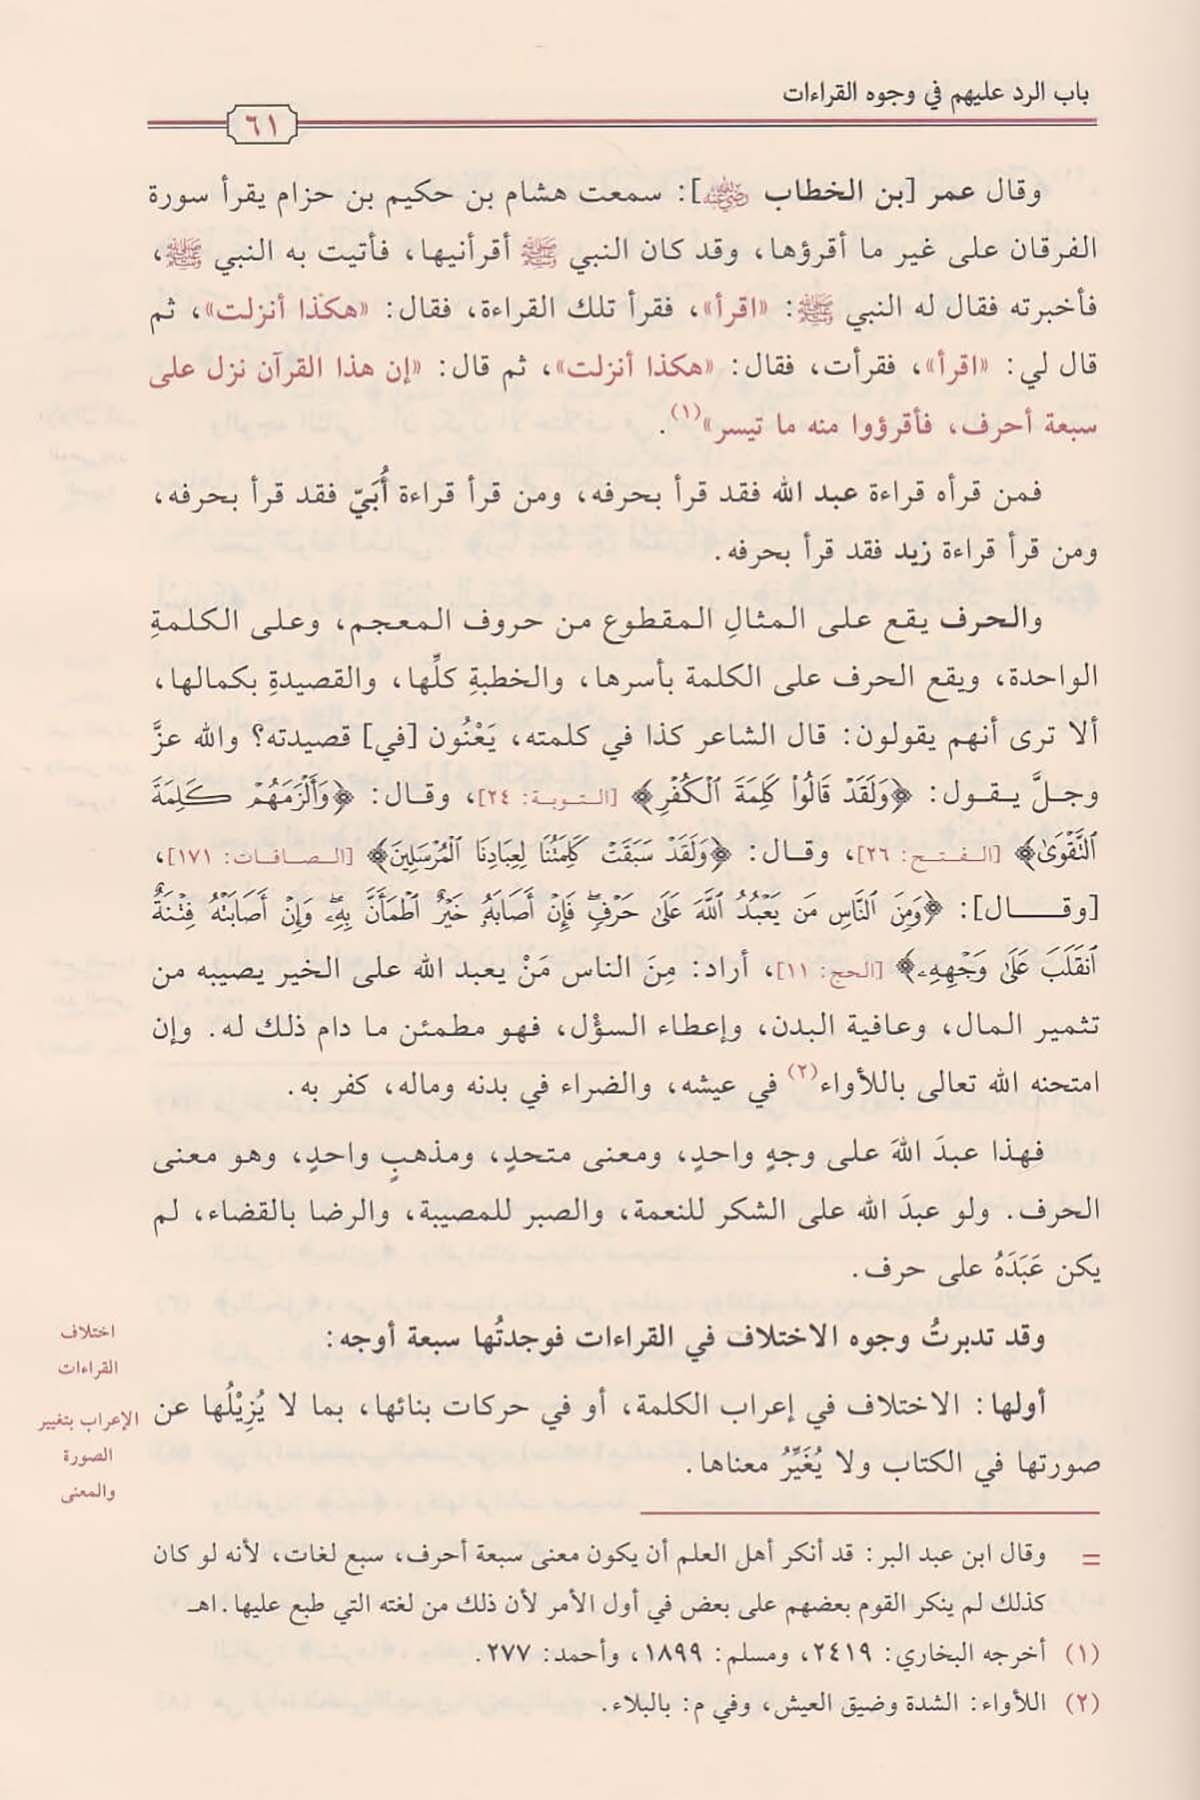 باب الرد عليهم في وجوه القراءات
٦١
وقال عمر [بن الخطاب رضي الله عنه]: سمعت هشام بن حكيم بن حزام يقرأ سورة
الفرقان على غير ما أقرؤها، وقد كان النبي ﷺ أقرأنيها، فأتيت به النبي ﷺ،
فأخبرته فقال له النبي ﷺ: «اقرأ»، فقرأ تلك القراءة، فقال: «هكذا أنزلت»، ثم
قال لي: «اقرأ»، فقرأت، فقال: «هكذا أنزلت»، ثم قال: «إن هذا القرآن نزل على
سبعة أحرف، فأقرؤوا منه ما تيسر»(١).
فمن قرأه قراءة عبد الله فقد قرأ بحرفه، ومن قرأ قراءة أُبَيّ فقد قرأ بحرفه،
ومن قرأ قراءة زيد فقد قرأ بحرفه.
والحرف يقع على المثالِ المقطوع من حروف المعجم، وعلى الكلمةِ
الواحدة، ويقع الحرف على الكلمة بأسرها، والخطبةِ كلِّها، والقصيدةِ بكمالها،
ألا ترى أنهم يقولون: قال الشاعر كذا في كلمته، يَعْنُون [في] قصيدته؟ والله عزَّ
وجلَّ يقول: ﴿وَلَقَدْ قَالُوا۟ كَلِمَةَ ٱلْكُفْرِ﴾ [التوبة: ٢٤]، وقال: ﴿وَأَلْزَمَهُمْ كَلِمَةَ
ٱلتَّقْوَىٰ﴾ [الفتح: ٢٦]، وقال: ﴿وَلَقَدْ سَبَقَتْ كَلِمَتُنَا لِعِبَادِنَا ٱلْمُرْسَلِينَ﴾ [الصافات: ١٧١]،
[وقال]: ﴿وَمِنَ ٱلنَّاسِ مَن يَعْبُدُ ٱللَّهَ عَلَىٰ حَرْفٍ ۖ فَإِنْ أَصَابَهُۥ خَيْرٌ ٱطْمَأَنَّ بِهِۦ ۖ وَإِنْ أَصَابَتْهُ فِتْنَةٌ
ٱنقَلَبَ عَلَىٰ وَجْهِهِۦ﴾ [الحج: ١١]، أراد: مِنَ الناس مَنْ يعبد الله على الخير يصيبه من
تثمير المال، وعافية البدن، وإعطاء السؤْل، فهو مطمئن ما دام ذلك له. وإن
امتحنه الله تعالى باللأواء(٢) في عيشه، والضراء في بدنه وماله، كفر به.
فهذا عبدَ اللهَ على وجهٍ واحدٍ، ومعنى متحدٍ، ومذهبٍ واحدٍ، وهو معنى
الحرف. ولو عبدَ الله على الشكر للنعمة، والصبر للمصيبة، والرضا بالقضاء، لم
يكن عَبَدَهُ على حرف.
وقد تدبرتُ وجوه الاختلاف في القراءات فوجدتُها سبعة أوجه:
أولها: الاختلاف في إعراب الكلمة، أو في حركات بنائها، بما لا يُزِيْلُها عن
صورتها في الكتاب ولا يُغَيِّرُ معناها.
اختلاف
القراءات
الإعراب بتغيير
الصورة
والمعنى
= وقال ابن عبد البر: قد أنكر أهل العلم أن يكون معنى سبعة أحرف، سبع لغات، لأنه لو كان
كذلك لم ينكر القوم بعضهم على بعض في أول الأمر لأن ذلك من لغته التي طبع عليها. اهـ
(١) أخرجه البخاري: ٢٤١٩، ومسلم: ١٨٩٩، وأحمد: ٢٧٧.
(٢) اللأواء: الشدة وضيق العيش، وفي م: بالبلاء.